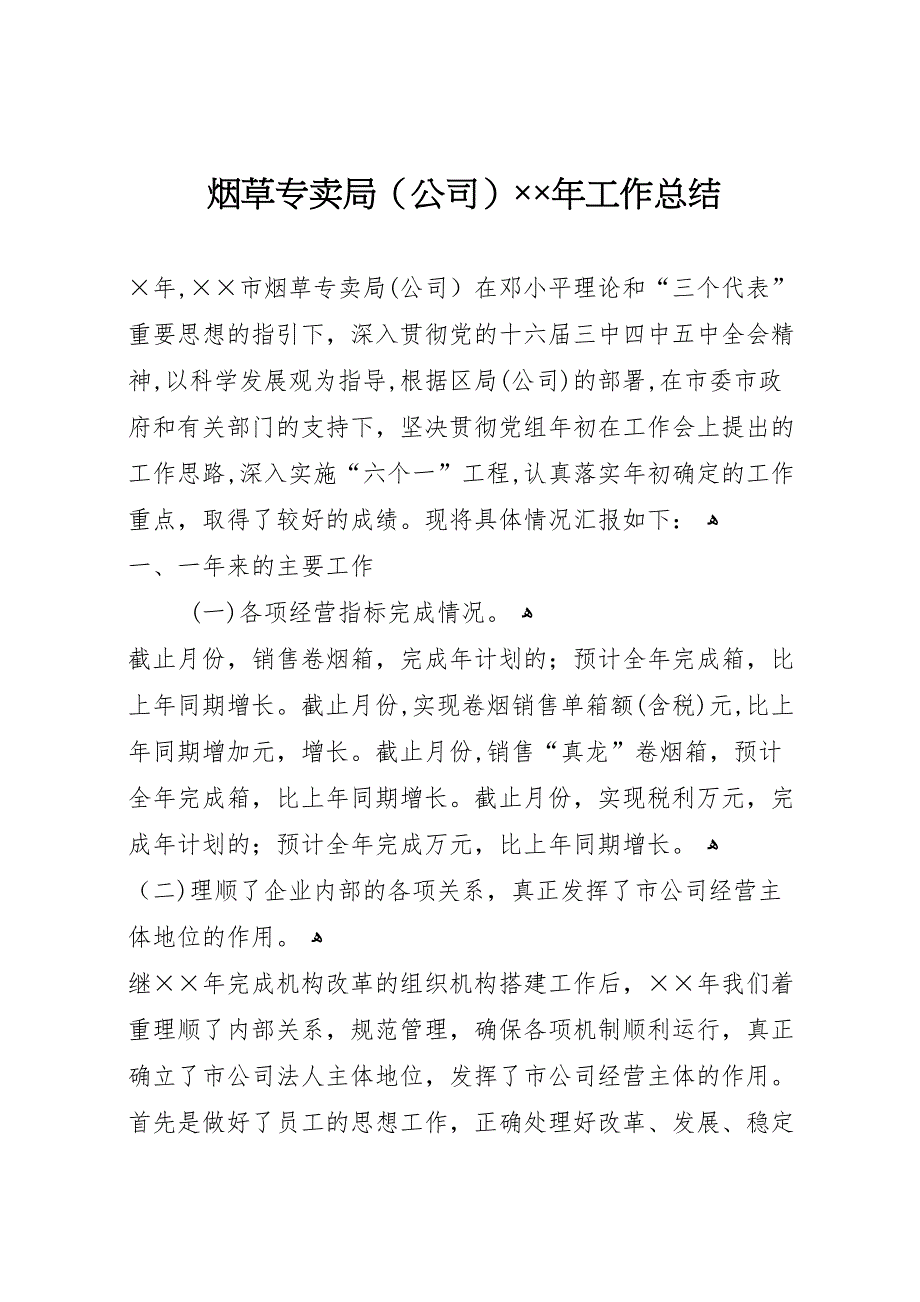 烟草专卖局（公司）××年工作总结
×年,××市烟草专卖局(公司）在邓小平理论和“三个代表”
重要思想的指引下，深入贯彻党的十六届三中四中五中全会精
神,以科学发展观为指导,根据区局(公司)的部署,在市委市政
府和有关部门的支持下，坚决贯彻党组年初在工作会上提出的
工作思路,深入实施“六个一”工程,认真落实年初确定的工作
重点，取得了较好的成绩。现将具体情况汇报如下： ﻫ
一、一年来的主要工作
(一)各项经营指标完成情况。 ﻫ
截止月份，销售卷烟箱，完成年计划的；预计全年完成箱，比
上年同期增长。截止月份,实现卷烟销售单箱额(含税)元,比上
年同期增加元，增长。截止月份,销售“真龙”卷烟箱，预计
全年完成箱，比上年同期增长。截止月份，实现税利万元，完
成年计划的；预计全年完成万元，比上年同期增长。 ﻫ
（二)理顺了企业内部的各项关系，真正发挥了市公司经营主
体地位的作用。 ﻫ
继××年完成机构改革的组织机构搭建工作后，××年我们着
重理顺了内部关系，规范管理，确保各项机制顺利运行，真正
确立了市公司法人主体地位，发挥了市公司经营主体的作用。
首先是做好了员工的思想工作，正确处理好改革、发展、稳定